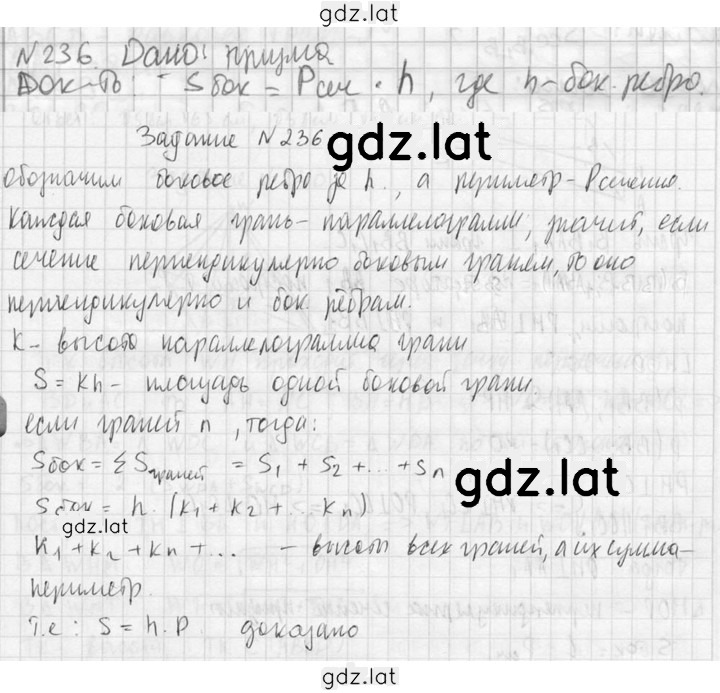 gdz.lat
N236. Дано: призма
Док-ть: Sбок = Pсеч · h, где h - бок. ребро.
Задание N236
gdz.lat
Обозначим боковое ребро за h., а периметр - Pсечения.
Каждая боковая грань - параллелограмм, значит, если
сечение перпендикулярно боковым граням, то оно
перпендикулярно и бок. рёбрам.
K - высота параллелограмма грани
S = kh - площадь одной боковой грани
если граней n, тогда:
Sбок = Σ Sграней = S1 + S2 + ... + Sn
gdz.lat
Sбок = h · (k1 + k2 + ... = kn)
gdz.lat
k1 + k2 + kn + ... - высоты всех граней, а их сумма -
периметр.
т.е: S = h · P доказано
gdz.lat